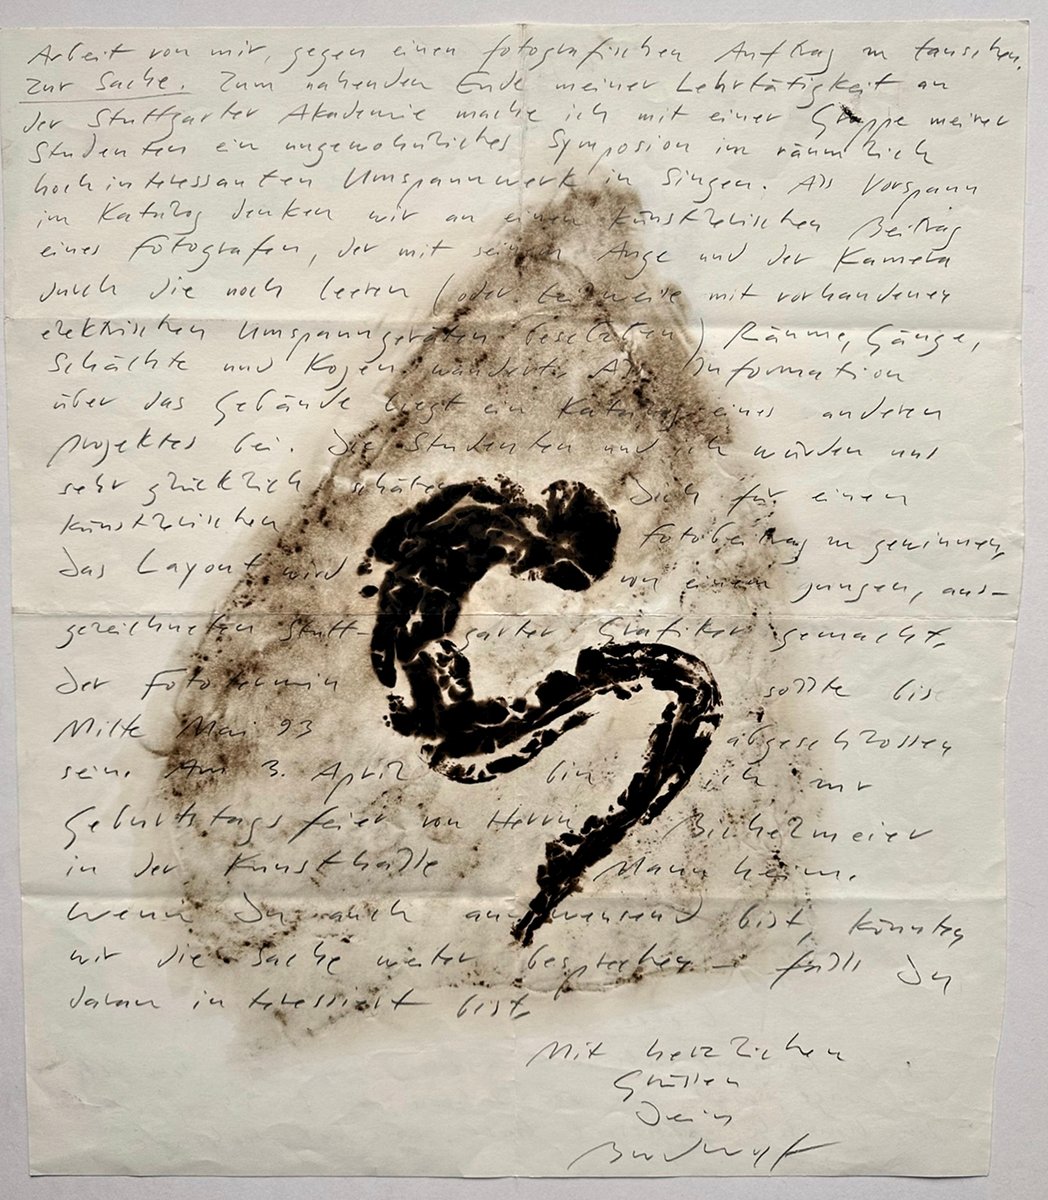 Arbeit von mir, gegen einen fotografischen Auftrag zu tauschen.
Zur Sache. Zum nahenden Ende meiner Lehrtätigkeit an
der Stuttgarter Akademie mache ich mit einer Gruppe meiner
Studenten ein ungewöhnliches Symposion im räumlich
hochinteressanten Umspannwerk in Singen. Als Vorspann
im Katalog denken wir an einen künstlerischen Beitrag
eines Fotografen, der mit seinem Auge und der Kamera
durch die noch leeren (oder teilweise mit vorhandenen
elektrischen Umspanngeräten besetzten) Räume, Gänge,
Schächte und Kojen wandert. Als Information
über das Gebäude liegt ein Katalog eines anderen
Projektes bei. Die Studenten und ich würden uns
sehr glücklich schätzen Dich für einen
künstlerischen Fotobeitrag zu gewinnen,
Das Layout wird von einem jungen, aus-
gezeichneten Stutt- garter Grafiker gemacht.
Der Fototermin sollte bis
Mitte Mai 93 abgeschlossen
sein. Am 3. April bin ich zur
Geburtstagsfeier von Herrn
in der Kunsthalle Mannheim.
Wenn Du auch anwensend bist, könnten
wir die Sache weiter besprechen – falls Du
daran interessiert bist.
Mit herzlichen
Grüßen
Dein